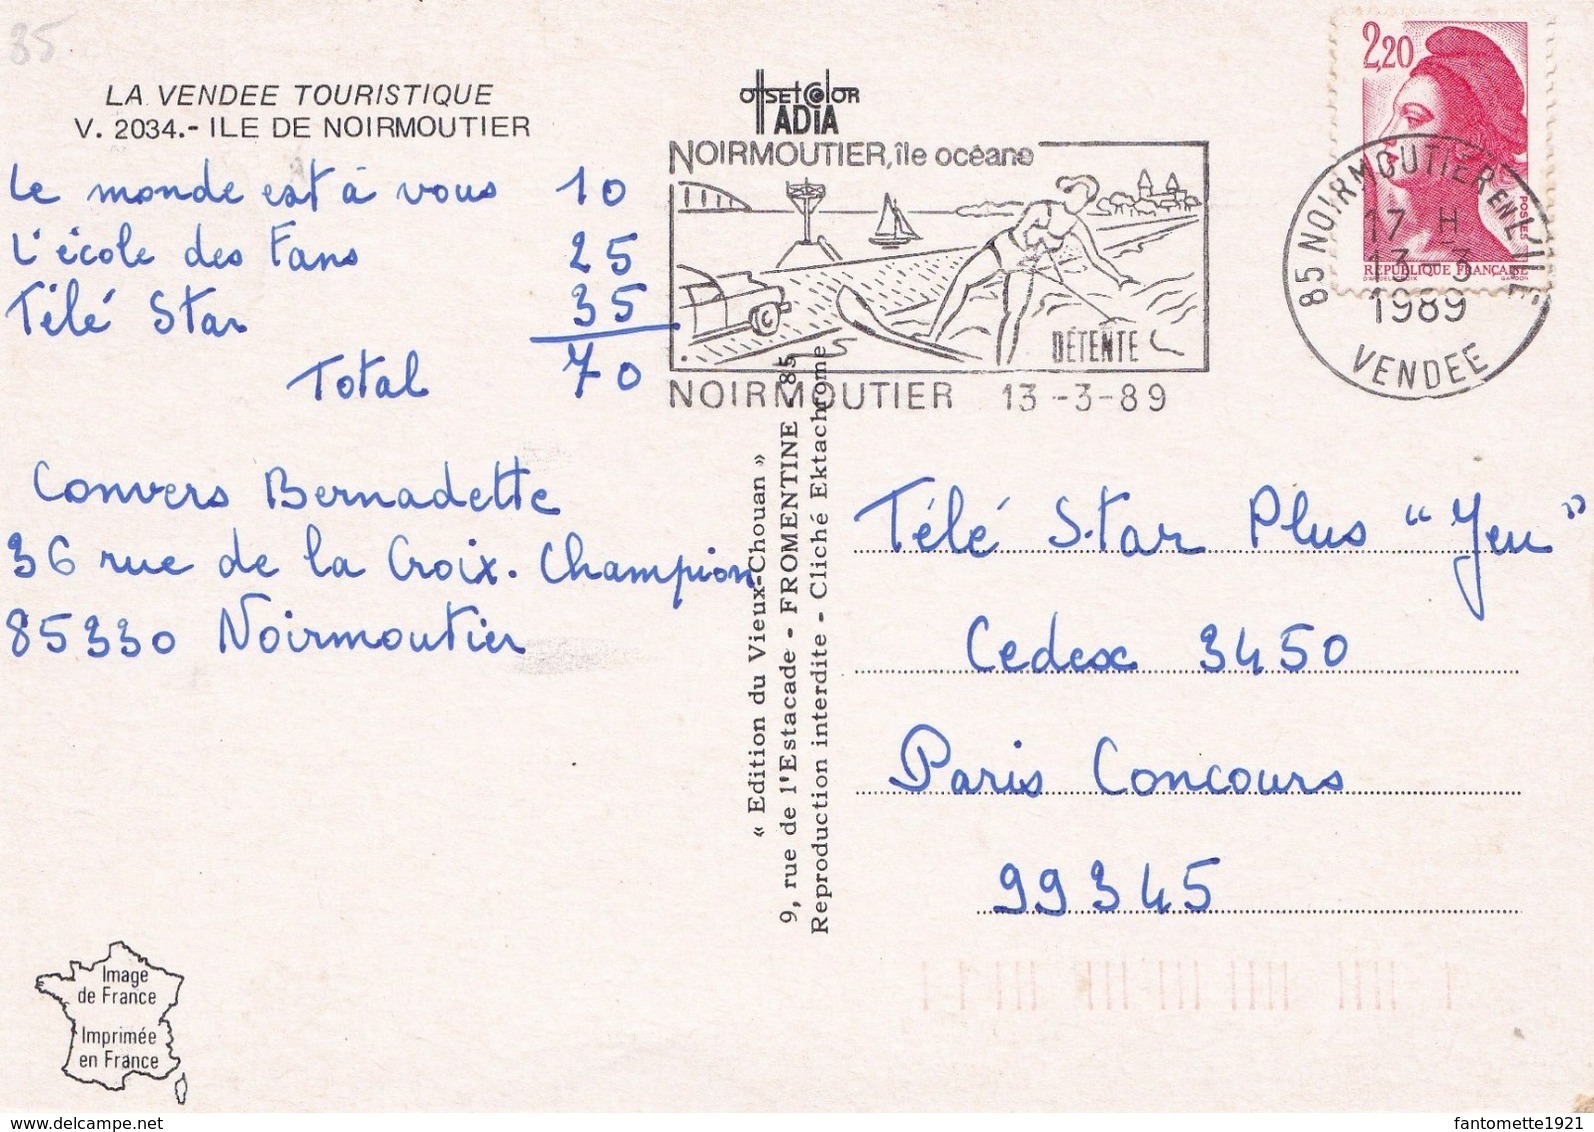 85
LA VENDEE TOURISTIQUE
V. 2034.- ILE DE NOIRMOUTIER
Le monde est à vous 10
L'école des Fans 25
Télé Star 35
Total 70
Convers Bernadette
36 rue de la Croix. Champion
85330 Noirmoutier
Image
de France
Imprimée
en France
OffSET COlOR
ADIA
NOIRMOUTIER, île océane
DÉTENTE
NOIRMOUTIER 13-3-89
« Edition du Vieux-Chouan »
9, rue de l'Estacade - FROMENTINE - 85
Reproduction interdite - Cliché Ektachrome
2,20
POSTES
REPUBLIQUE FRANÇAISE
85 NOIRMOUTIER EN L'ILE
17 H
13-3
1989
VENDEE
Télé Star Plus "Yeu"
Cedex 3450
Paris Concours
99345
fantomette1921